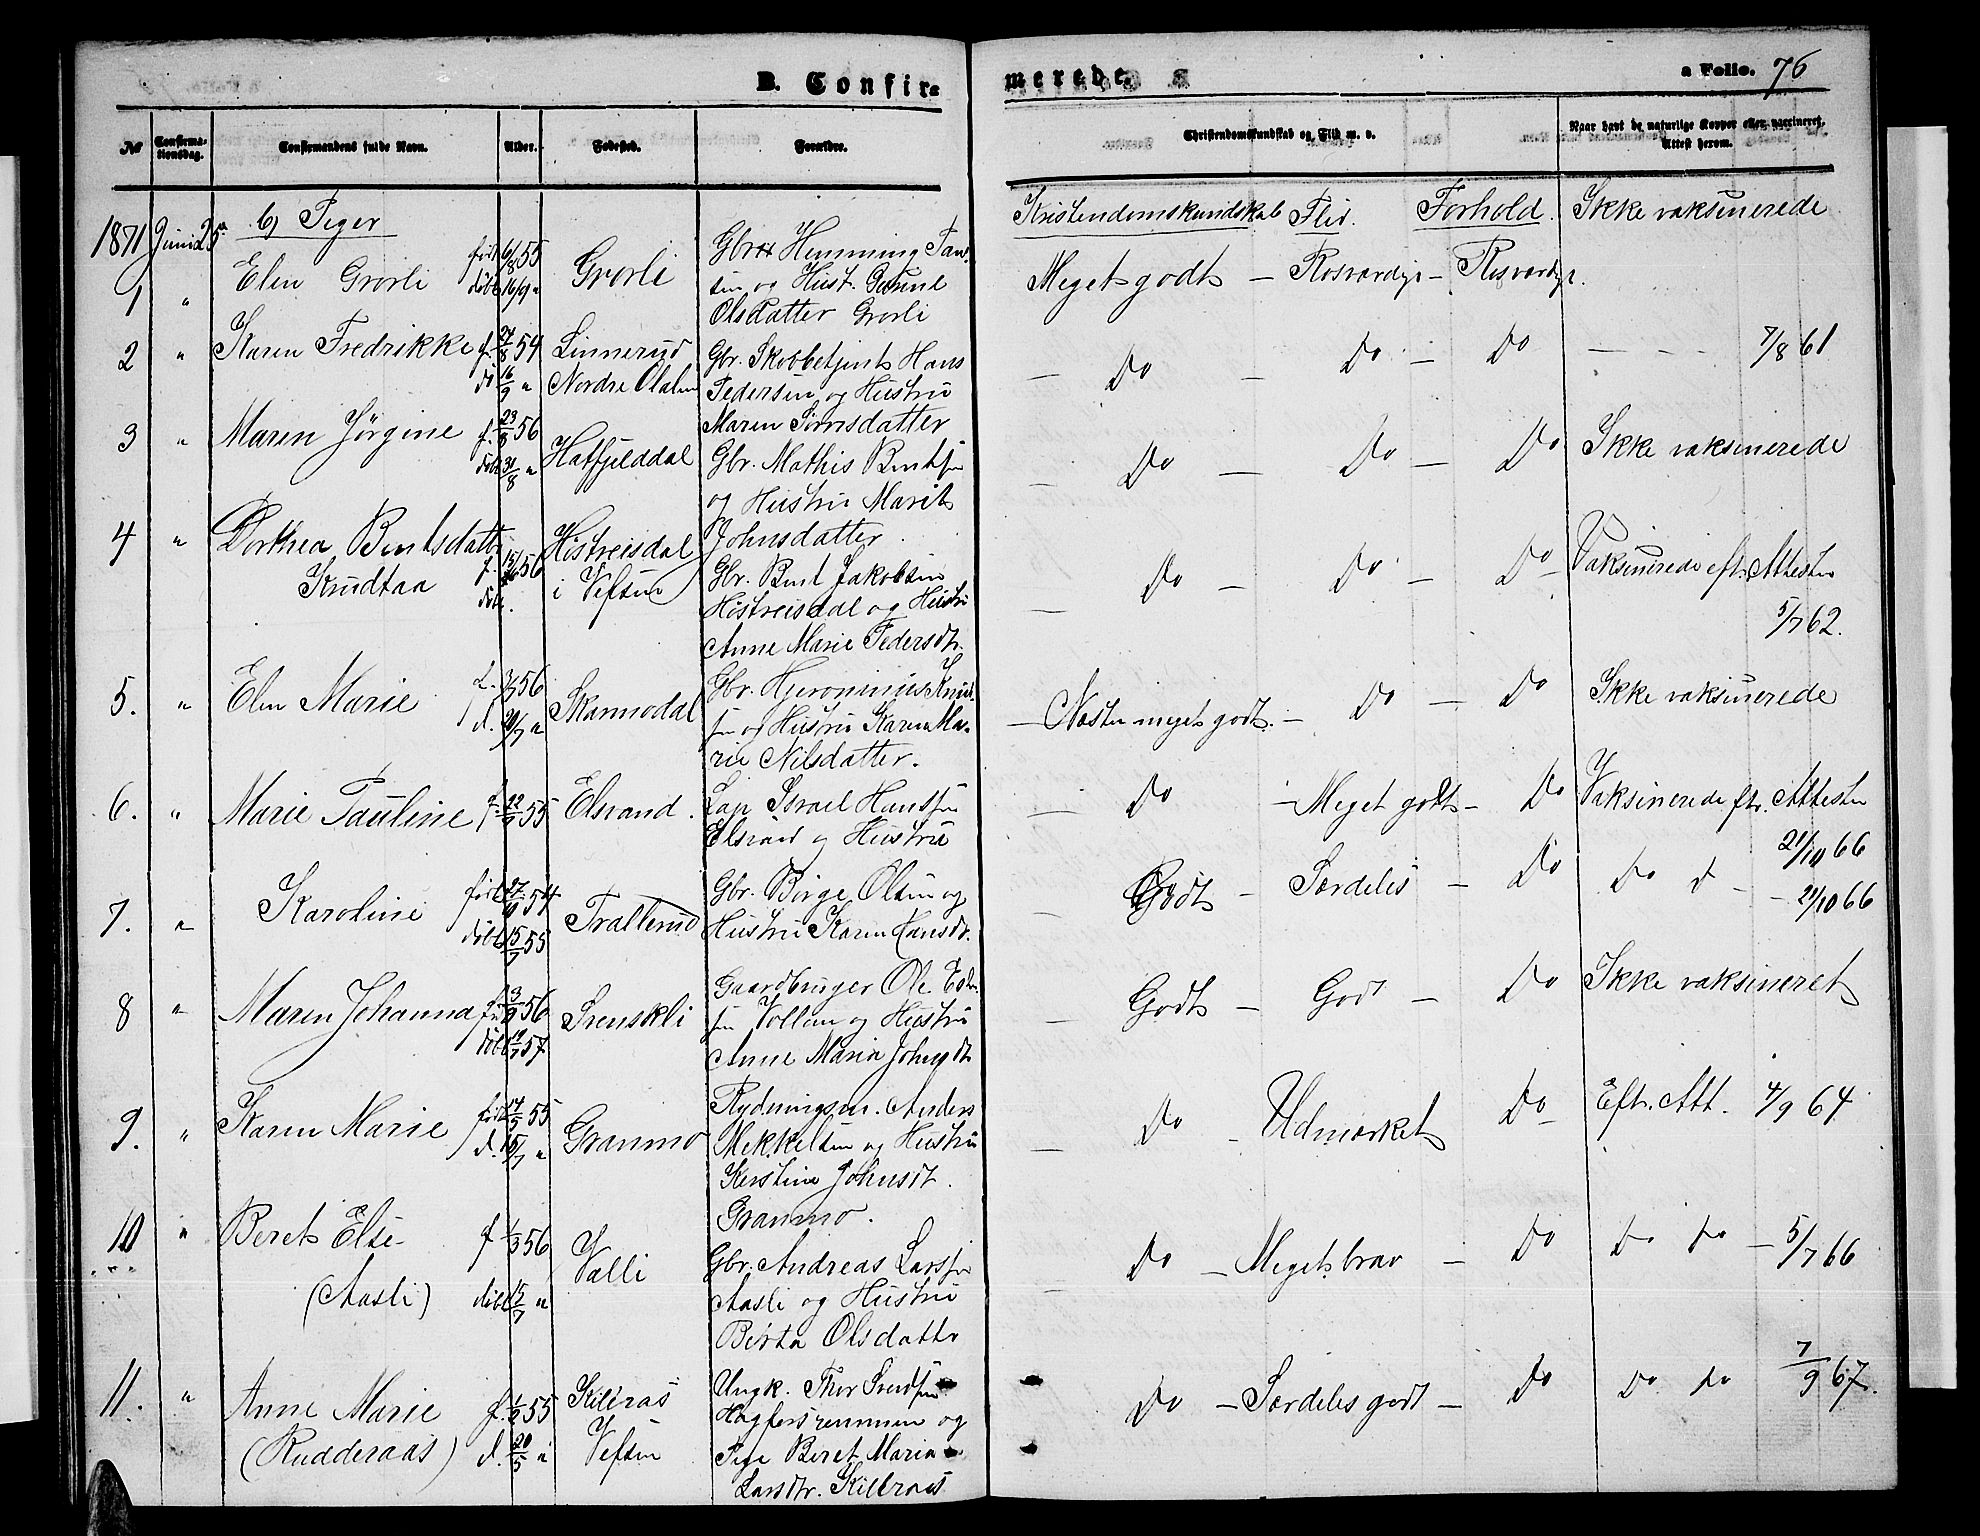 B. Confir-
merede.
a Folio. 76
No
Confirma-
tionsdag.
Confirmandens fulde Navn.
Alder.
Fødested.
Forældre.
Christendomskundskab og Flid m. v.
Naar havt de naturlige Kopper eller vaccineret.
Attest herom.
1871 Juni 25de b) Piger
Kristendomskundskab Flid. Forhold. Ikke vaksinerede
1 " Elen Grorli født 6/8 55 døbt 16/9 "
Grorli
Gbr. Hemming
sen og Hust.
Olsdatter Grorli
Meget godt – Rosværdig – Rosværdig.
2 " Karen Fredrikke f. 24/8 54
dø 16/9 "
Linnerud
Nordre Olalen
Gbr. Skobbetjent Hans
Pedersen og Hustru
Maren Sørnsdatter
– Do – Do – Do – – – 7/8 61
3 " Maren Jørgine f. 23/8 56
døbt 31/8 "
Hatfjelddal
Gbr. Mathis Bentsen
og Hustru Marit
Johnsdatter.
– Do – Do – Do Ikke vaksinerede
4 " Dorthea Bentsdatter
Krudtaa f. 56
døbt.
Hestreisdal
i Vefsen
Gbr. Bent Jakobsen
Hestreisdal og Hustru
Anne Marie Pedersdtr.
– Do – Do – Do – Vaksinerede eft. Attester
5/7 62.
5. " Elen Marie f. 56
d. "
Skammodal
Gbr. Hjeronimus Knud-
sen og Hustru Karen Ma-
rie Nilsdatter.
– Næsten meget godt. – Do – Do Ikke vaksinerede
6. " Marie Pauline f. 55
Elsvand.
Lap Israel Hansen
Elsvand og Hustru
– Do – Meget godt – Do Vaksinerede eftr. Attester
21/10 66
7. " Karoline født 54
døbt 15/7 55
Trallerud
Gbr. Børge Olsen og
Hustru Karen Hansdr.
– Godt – Særdeles – Do Do d – 21/10 66
8 " Maren Johanna 56
døbt 57
Svenskli
Gaardbruger Ole
sen Vollan og Hustru
Anne Maria Johnsdt
– Godt – Godt – Do Ikke vaksineret
9. " Karen Marie født 14/5 55
d. 15/7 "
Granmo
Rydningsm. Anders
Mekkelsen og Hustru
Kerstine Johnsdt.
Granmo.
– Do – Udmærket Do – Eft. Att. 4/9 64
10 " Beret Else f. 1/3 56
(Aasli) døbt "
Valli
Gbr. Andreas Larsen
Aasli og Hustru
Berta Olsdatter
Do – Meget brav – Do Do do – 5/7 66
11. " Anne Marie f. 55
(Rudderaas) d. 20/5 "
Kilkraas
Vefsen
Ungk. Thor Svendsen
og
Pige Beret Maria
Larsdtr. Kilkraas
Do – Særdeles godt – Do Do do 7/9 67.